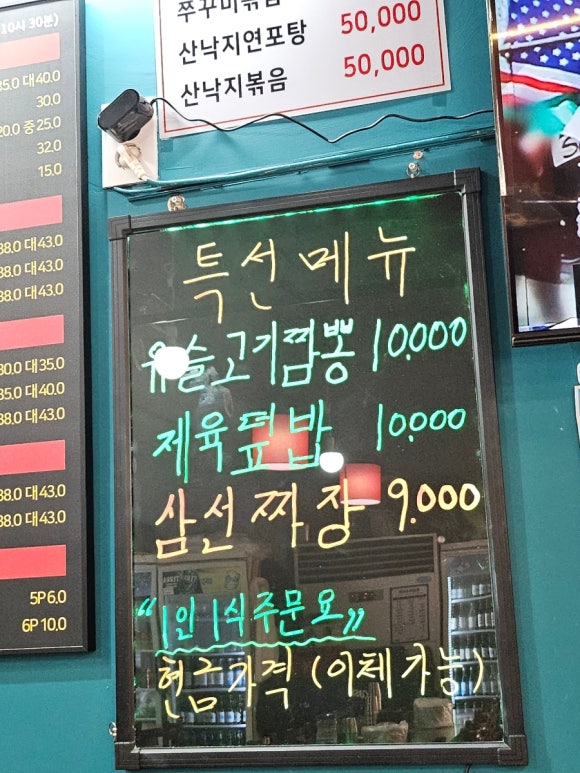 10시 30분)
35.0 대40.0
30.0
20.0 중25.0
32.0
15.0
38.0 대43.0
38.0 대43.0
38.0 대43.0
30.0 대35.0
35.0 대40.0
38.0 대43.0
38.0 대43.0
38.0 대43.0
5P 6.0
6P 10.0
쭈꾸미볶음 50,000
산낙지연포탕 50,000
산낙지볶음
특선메뉴
유슬고기짬뽕 10.000
제육덮밥 10.000
삼선짜장 9.000
“1인 1식주문요”
현금가격 (이체가능)